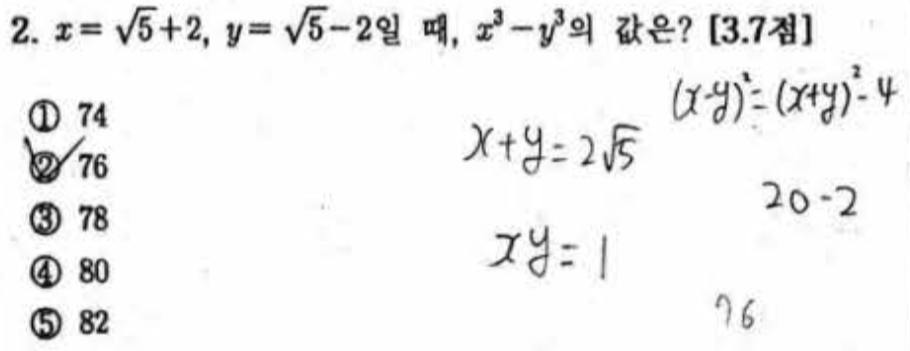 2. x = √5+2, y = √5−2일 때, x³−y³의 값은? [3.7점]
① 74
② 76
③ 78
④ 80
⑤ 82
x+y=2√5
xy=1
(x-y)²=(x+y)²-4
20-2
76